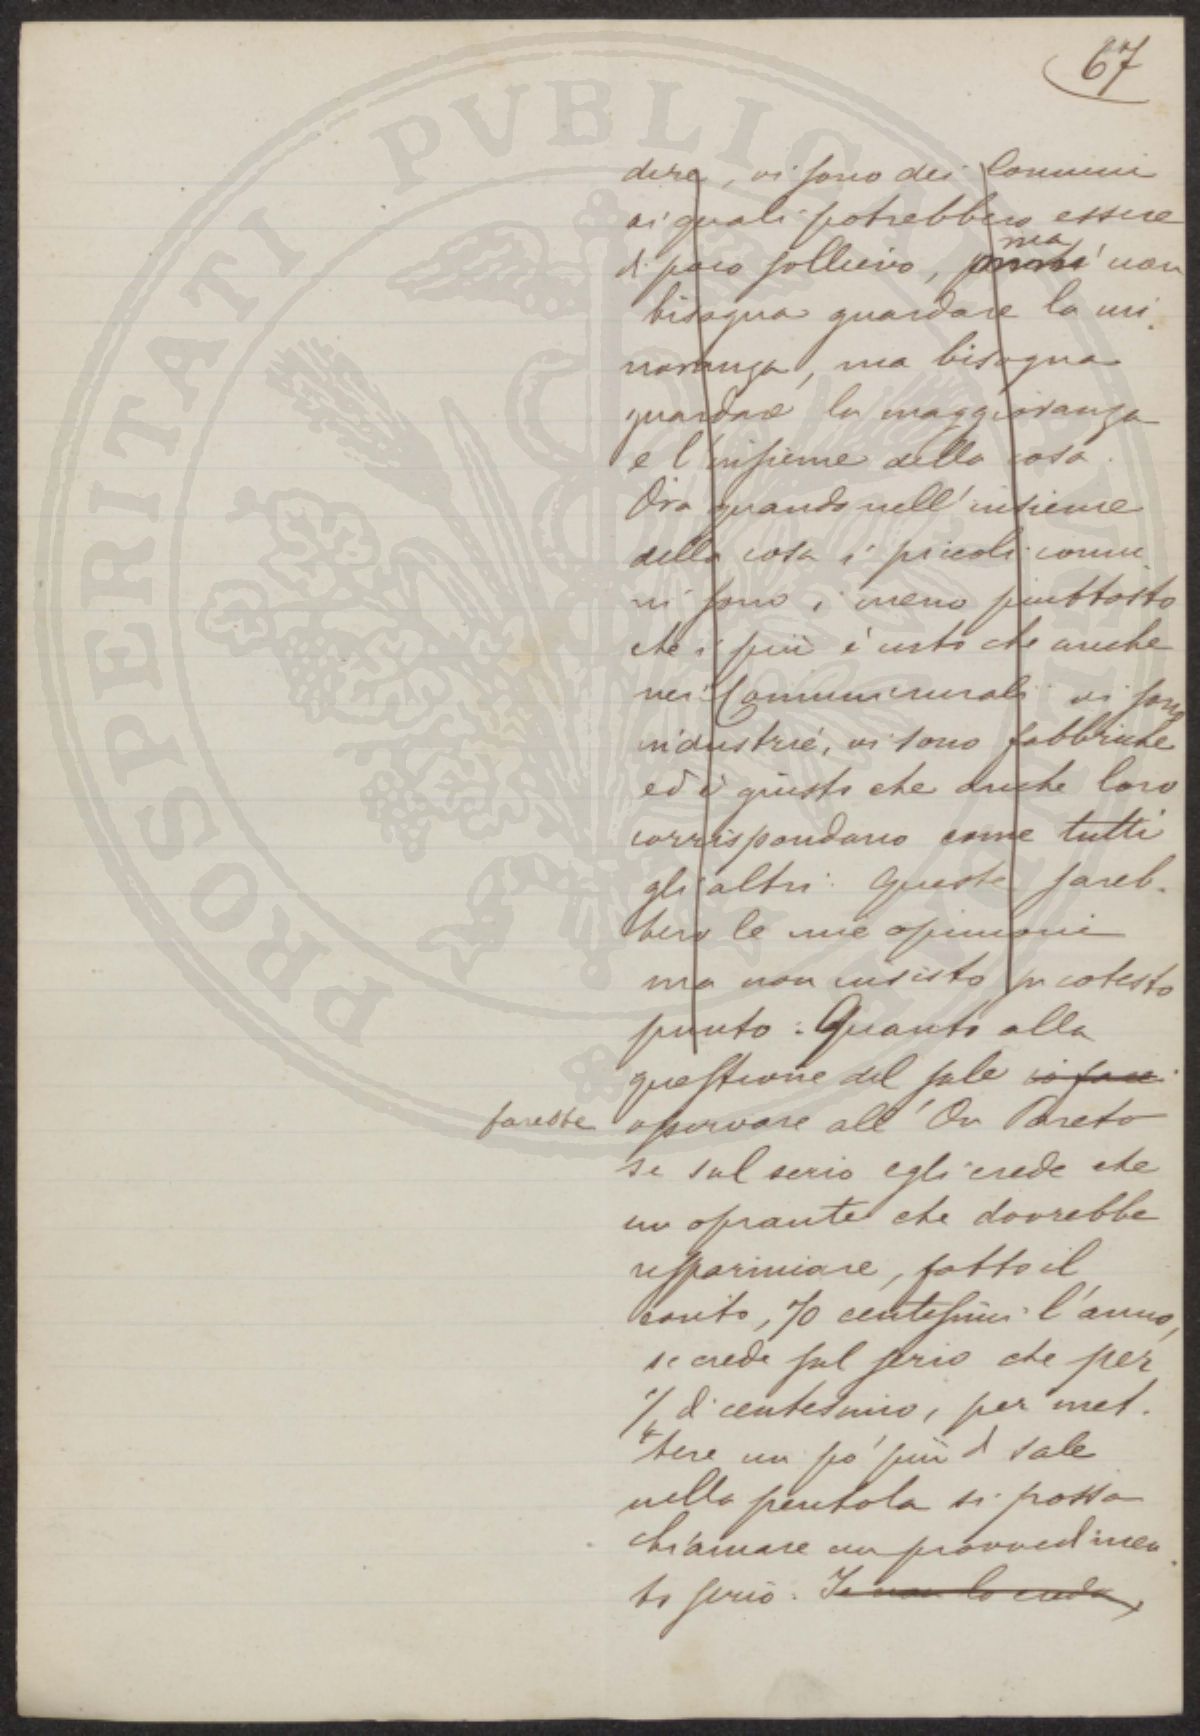 67
dire, vi sono dei Comuni
ai quali potrebbero essere
di poco sollievo, ma non
bisogna guardare la mi
noranza, ma bisogna
guardare la maggioranza
e l'insieme della cosa.
Ora quando nell'insieme
della cosa i piccoli comu
ni sono i meno piuttosto
che i più è certo che anche
nei Comuni rurali vi sono
industrie, vi sono fabbriche
ed è giusto che anche loro
corrispondano come tutti
gli altri. Queste sareb-
bero le mie opinioni
ma non insisto su cotesto
punto. Quanto alla
questione del sale io farei
farebbe osservare all'On Pareto
se sul serio egli crede che
un oprante che dovrebbe
risparmiare, fatto il
conto, 70 centesimi l'anno,
se crede sul serio che per
di centesimo, per met-
tere un po' più di sale
nella pentola si possa
chiamare un provvedimen
to serio. Io non lo credo,
PROSPERITATI PVBLICAE